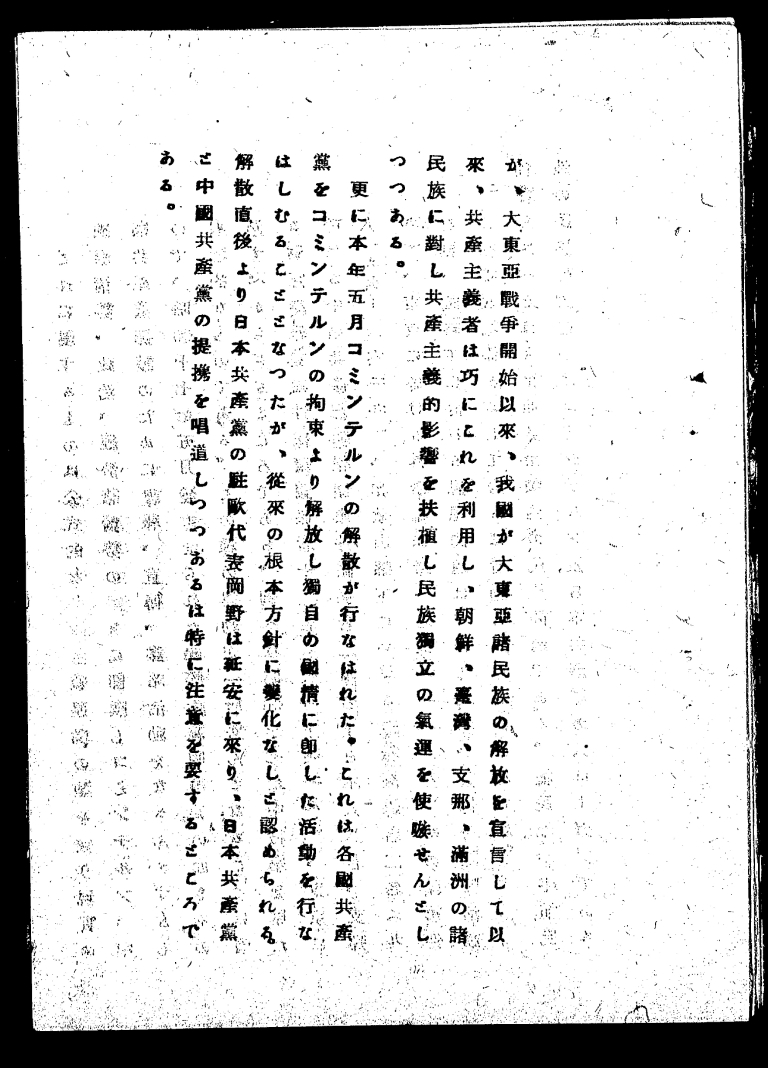 が、大東亞戰爭開始以來、我國が大東亞諸民族の解放を宣言して以
來、共產主義者は巧にこれを利用し、朝鮮、臺灣、支那、滿洲の諸
民族に對し共產主義的影響を扶植し民族獨立の氣運を使嗾せんとし
つつある。
更に本年五月コミンテルンの解散が行なはれた。これは各國共產
黨をコミンテルンの拘束より解放し獨自の國情に卽した活動を行な
はしむることとなつたが、從來の根本方針に變化なしと認められる。
解散直後より日本共產黨の駐歐代表岡野は延安に來り、日本共產黨
と中國共產黨の提携を唱道しつつあるは特に注意を要するところで
ある。